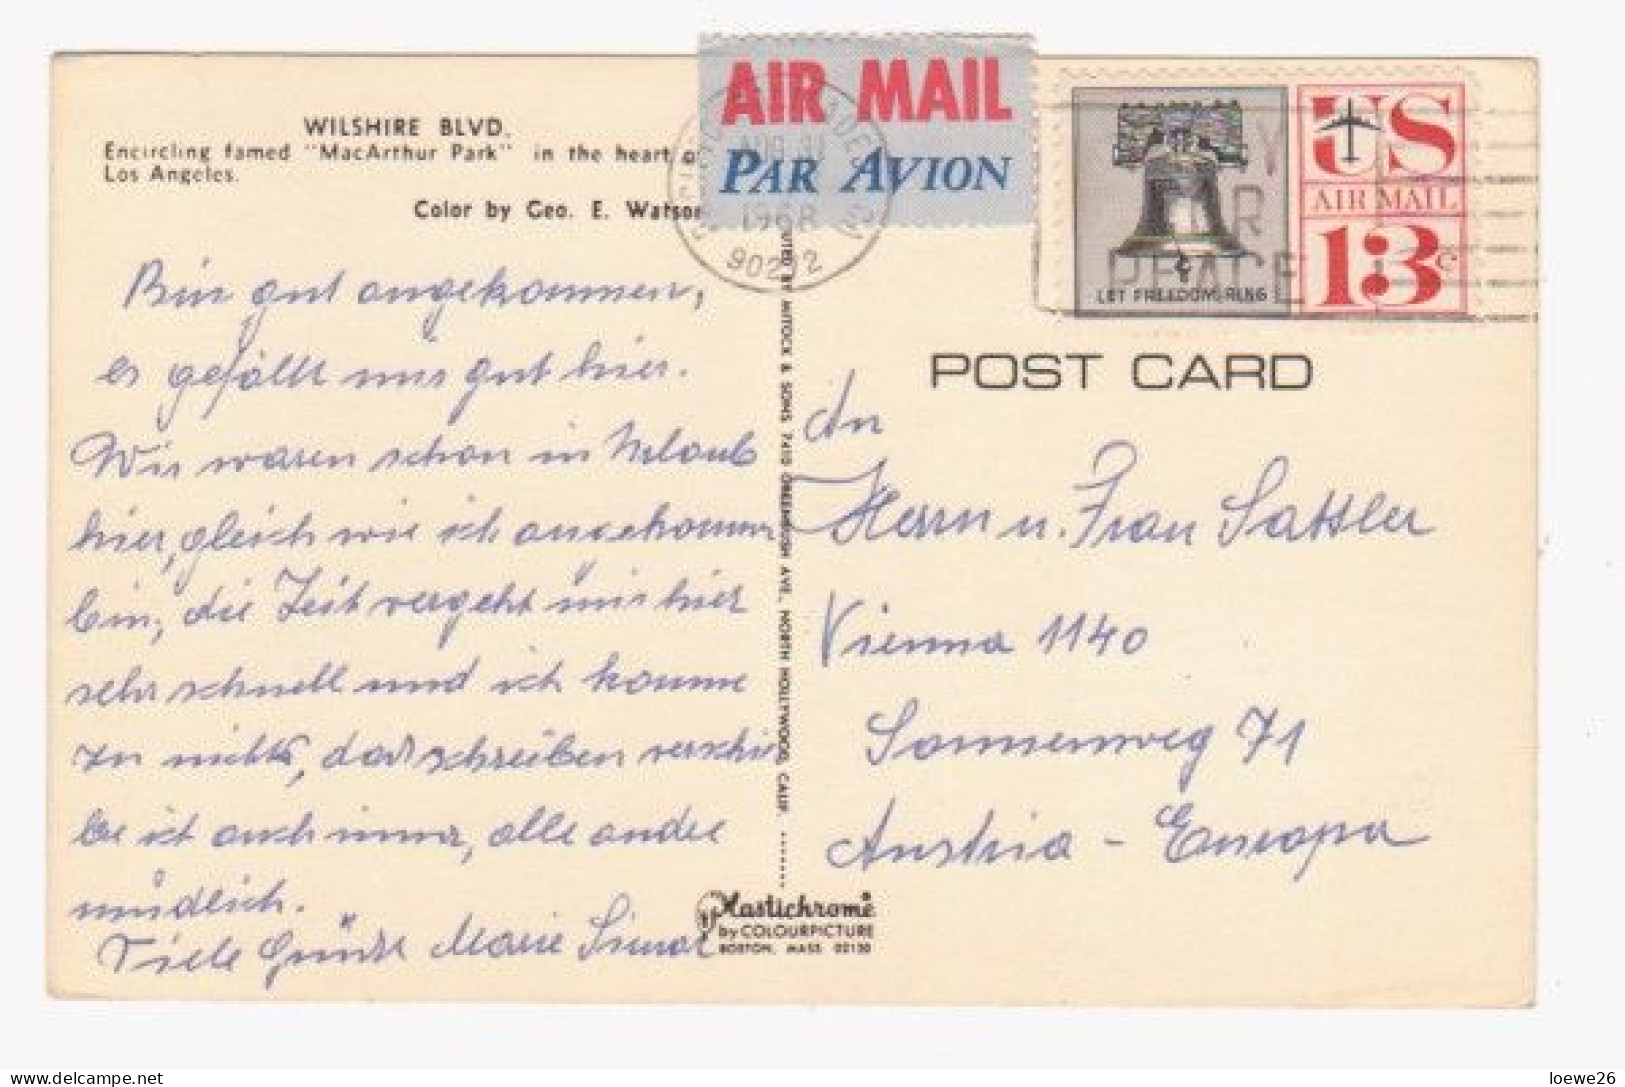 WILSHIRE BLVD.
Encircling famed "MacArthur Park" in the heart o
Los Angeles.
Color by Geo. E. Watson
AIR MAIL
PAR AVION
AUG 31
1968
90202
PRAY
FOR
PEACE
US
AIR MAIL
13c
LET FREEDOM RING
POST CARD
Bin gut angekommen,
es gefällt uns gut hier.
Wir waren schon in Urlaub
hier, gleich wie ich angekommen
bin, die Zeit vergeht uns hier
sehr schnell und ich komme
zu nichts, das schreiben verschie
be ich auch immer, alle andre
mündlich.
Viele Grüße Marie
An
Herrn u. Frau Sattler
Vienna 1140
Sonnenweg 71
Austria - Europa
UTED BY MITOCK & SONS 7410 GREENBUSH AVE., NORTH HOLLYWOOD, CALIF.
Plastichrome
by COLOURPICTURE
BOSTON, MASS 02130
loewe26